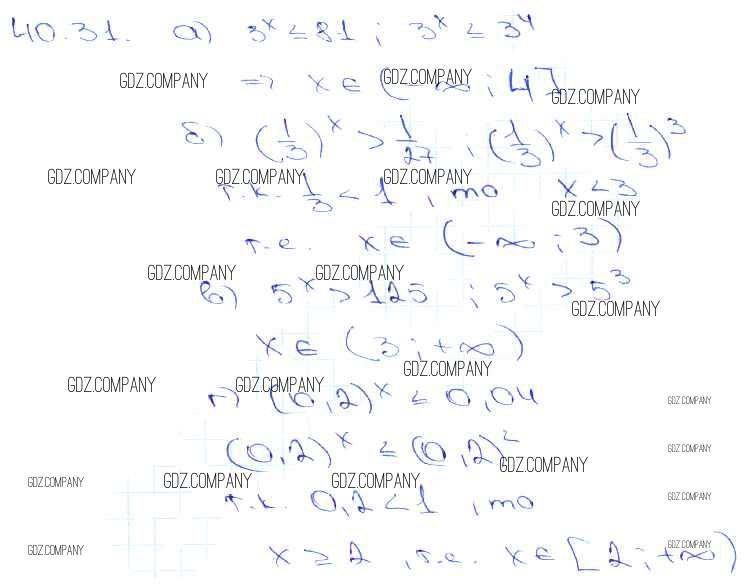 40.31. а) 3^x ≤ 81 ; 3^x ≤ 3^4
GDZ.COMPANY => x ∈ (-∞ ; 4] GDZ.COMPANY GDZ.COMPANY
б) (1/3)^x > 1/27 ; (1/3)^x > (1/3)^3
GDZ.COMPANY GDZ.COMPANY GDZ.COMPANY
т.к. 1/3 < 1 , то x < 3
GDZ.COMPANY
т.е. x ∈ (-∞ ; 3)
GDZ.COMPANY GDZ.COMPANY
в) 5^x > 125 ; 5^x > 5^3
GDZ.COMPANY
x ∈ (3 ; +∞)
GDZ.COMPANY
GDZ.COMPANY GDZ.COMPANY
г) (0,2)^x ≤ 0,04 GDZ.COMPANY
(0,2)^x ≤ (0,2)^2 GDZ.COMPANY
GDZ.COMPANY
GDZ.COMPANY GDZ.COMPANY GDZ.COMPANY
т.к. 0,2 < 1 , то GDZ.COMPANY
GDZ.COMPANY GDZ.COMPANY
x ≥ 2 , т.е. x ∈ [2 ; +∞)